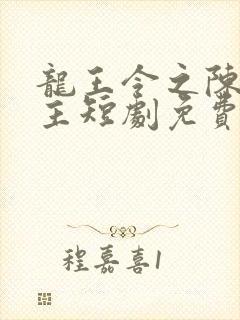 龍王令之陳
主短劇免費
程嘉喜1